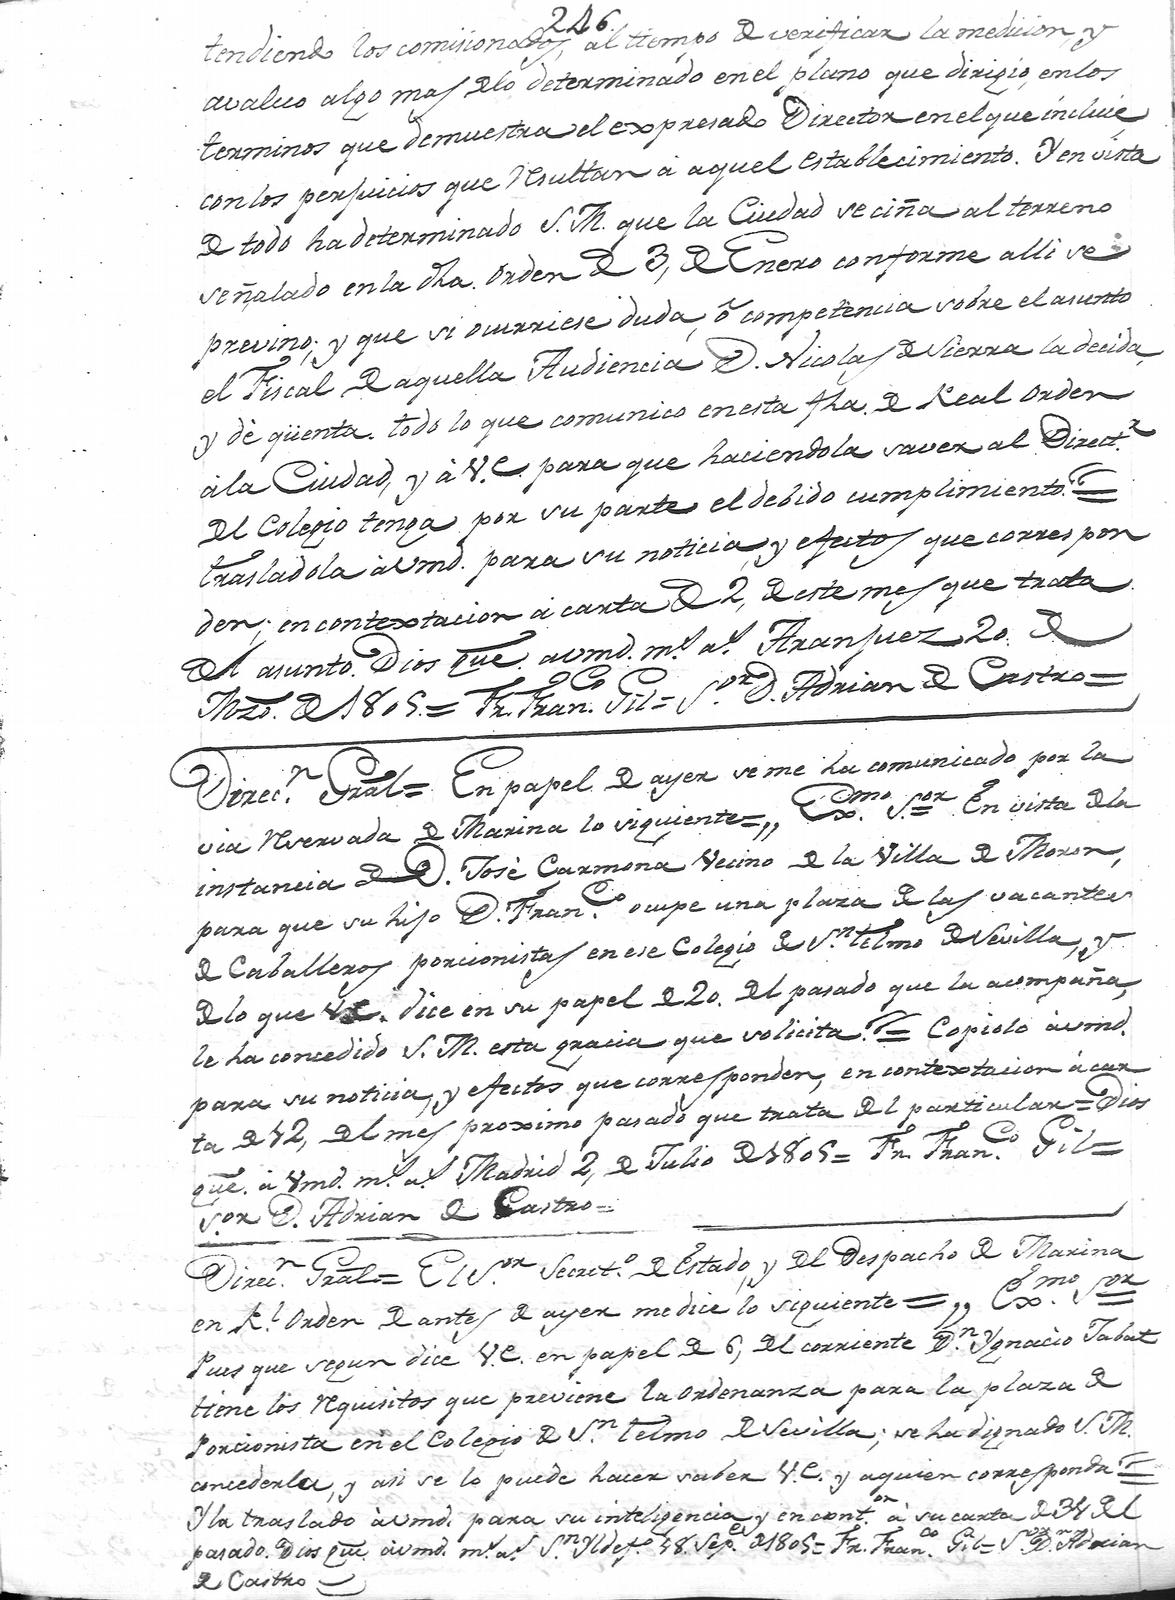 246.
tendiendo los comisionados, al tiempo de verificar la medicion, y
avaluo algo mas de lo determinado en el plano que dirigio, en los
terminos que demuestra el expresado Director en el que incluie,
con los perjuicios que resultan à aquel establecimiento. Y en vista
de todo ha determinado S. M. que la Ciudad se ciña al terreno
señalado en la dha. orden de 3, de Enero conforme alli se
previno; y que si ocurriese duda, ô competencia sobre el asunto
el Fiscal de aquella Audiencia D. Nicolas de Sierra la decida,
y dè qüenta. todo lo que comunico en esta fha. de Real orden
à la Ciudad, y à V.E. para que haciendola saver al Direct.r
del Colegio tenga por su parte el debido cumplimiento. =
trasladola à vmd. para su noticia, y efectos que correspon
den; en contextacion à carta de 2, de este mes que trata
del asunto. Dios gue. avmd. m.s a.s Aranjuez 20. de
Mzo. de 1805. = Fr. Fran.co Gil = S.or D. Adrian de Castro =
Direc.n Gral = En papel de ayer se me ha comunicado por la
via reservada de Marina lo siguiente = ,, Ex.mo S.or En vista de la
instancia de D. Josè Carmona Vecino de la Villa de Moron,
para que su hijo D. Fran.co ocupe una plaza de las vacantes
de Caballeros porcionistas en ese Colegio de S.n telmo de Sevilla, y
de lo que V.E. dice en su papel de 20. del pasado que la acompaña,
le ha concedido S. M. esta gracia que solicita. = Copiolo à vmd.
para su noticia, y efectos que corresponden, en contextacion à car
ta de 12, del mes proximo pasado que trata del particular = Dios
gue. à Vmd. m.s a.s Madrid 2, de Julio de 1805 = Fr. Fran.co Gil =
S.or D. Adrian de Castro =
Direc.n Gral = El S.or Secret.o de Estado, y del Despacho de Marina
en R.l orden de antes de ayer me dice lo siguiente = ,, Ex.mo S.or
Pues que segun dice V.E. en papel de 6, del corriente D.n Ygnacio Tabat
tiene los requisitos que previene la ordenanza para la plaza de
Porcionista en el Colegio de S.n telmo de Sevilla; se ha dignado S. M.
concederla, y asi se lo puede hacer saber V.E. y aquien corresponda =
Y la traslado à vmd. para su inteligencia y en cont.on à su carta de 31 del
pasado. Dios gue. àvmd. m.s a.s S.n Yldef.o 18. Sep.e de 1805 = Fr. Fran.co Gil = S.or D.n Adrian
de Castro =